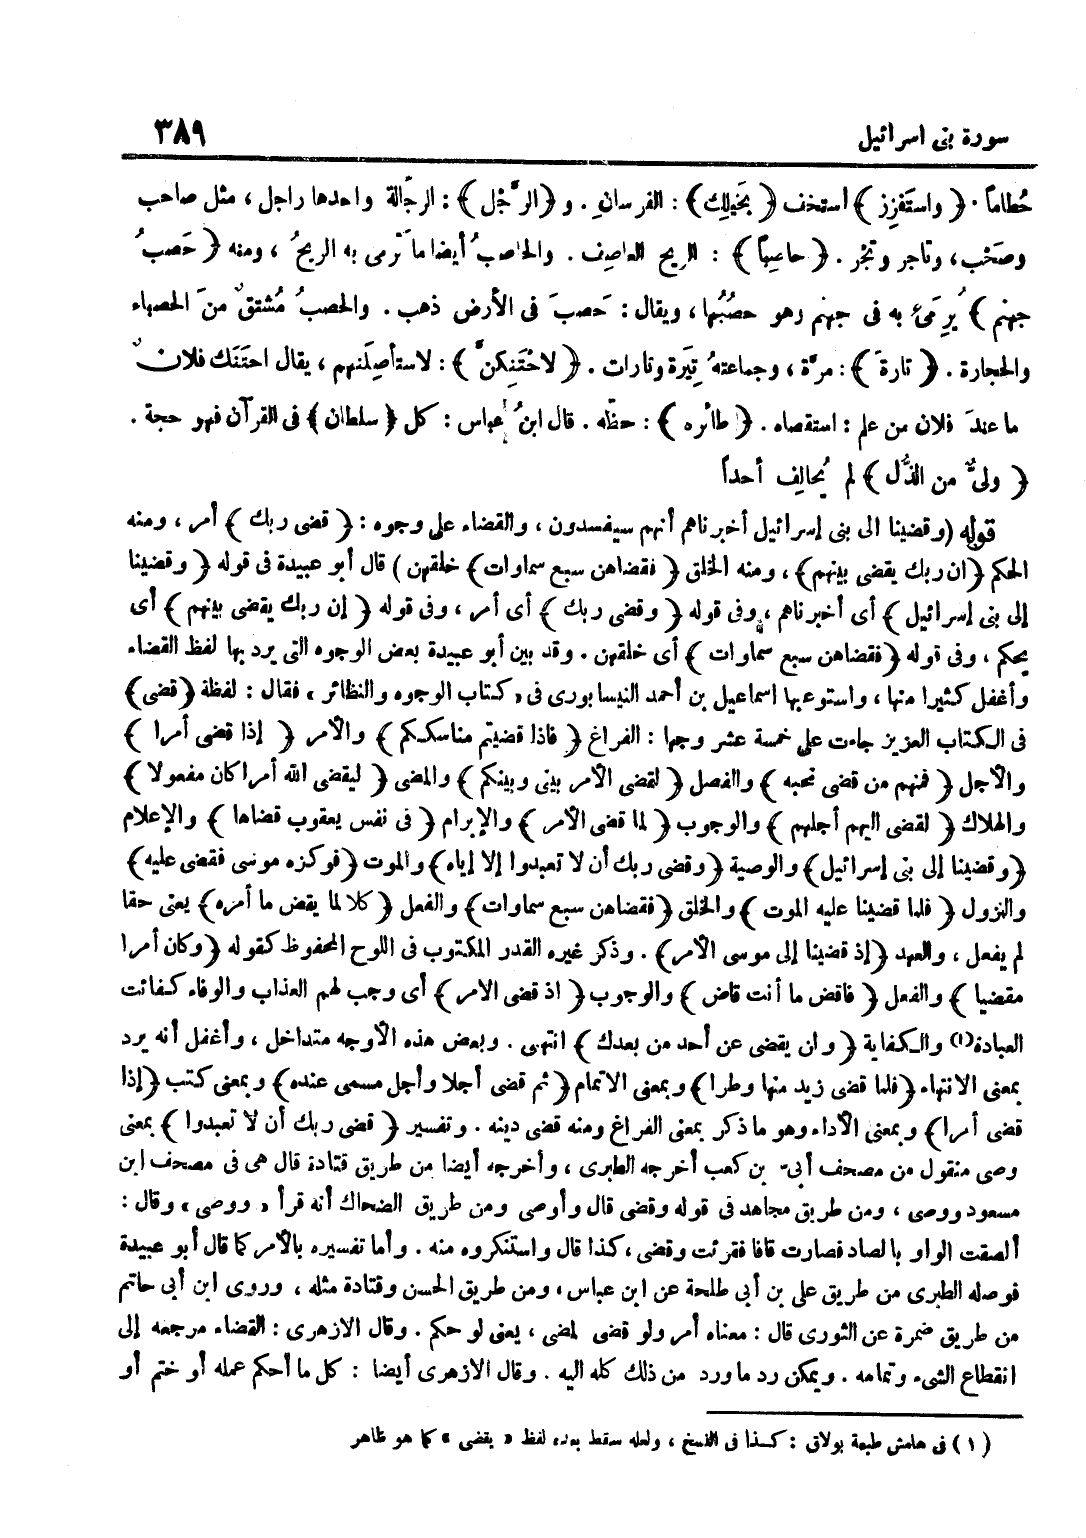 سورة بنى اسرائيل ٣٨٩
حُطاماً . ﴿ واستَفزِز ﴾ استخف ﴿ بخَيلِك ﴾ : الفرسانِ . و ﴿ الرَّجْل ﴾ : الرجالة واحدها راجل ، مثل صاحب
وصَحْب ، وتاجر وتَجْر . ﴿ حاصِباً ﴾ : الريح العاصِف . والحاصبُ أيضا ما تَرمى به الريحُ ، ومنه ﴿ حَصبُ
جهنم ﴾ يُرمَىٰ به فى جهنم وهو حصَبُها ، ويقال : حَصبَ فى الأرض ذهب . والحصبُ مُشتقٌ منَ الحصباء
والحجارة . ﴿ تارةَ ﴾ : مرَّة ، وجماعتهُ تِيَرة وتارات . ﴿ لاحْتَنِكنَّ ﴾ : لاستأصِلَنهم ، يقال احتَنَك فلانٌ
ما عندَ فلان من علم : استقصاه . ﴿ طائره ﴾ : حظّه . قال ابنُ عباس : كل ﴿ سلطان ﴾ فى القرآن فهو حجة .
﴿ ولىٌّ من الذُّل ﴾ لم يُحالِف أحداً
قوله ( وقضينا الى بنى إسرائيل أخبرناهم أنهم سيفسدون ، والقضاء على وجوه : ﴿ قضى ربك ﴾ أمر ، ومنه
الحكم ﴿ ان ربك يقضى بينهم ﴾ ، ومنه الخلق ﴿ فقضاهن سبع سماوات ﴾ خلقهن ) قال أبو عبيدة فى قوله ﴿ وقضينا
إلى بنى إسرائيل ﴾ أى أخبرناهم ، وفى قوله ﴿ وقضى ربك ﴾ أى أمر ، وفى قوله ﴿ إن ربك يقضى بينهم ﴾ أى
يحكم ، وفى قوله ﴿ فقضاهن سبع سماوات ﴾ أى خلقهن . وقد بين أبو عبيدة بعض الوجوه التى يرد بها لفظ القضاء
وأغفل كثيرا منها ، واستوعبها اسماعيل بن أحمد النيسابورى فى « كتاب الوجوه والنظائر » فقال : لفظة ﴿ قضى ﴾
فى الكتاب العزيز جاءت على خمسة عشر وجها : الفراغ ﴿ فاذا قضيتم مناسككم ﴾ والأمر ﴿ إذا قضى أمرا ﴾
والأجل ﴿ فمنهم من قضى نحبه ﴾ والفصل ﴿ لقضى الأمر بينى وبينكم ﴾ والمضى ﴿ ليقضى الله أمرا كان مفعولا ﴾
والهلاك ﴿ لقضى اليهم أجلهم ﴾ والوجوب ﴿ لما قضى الأمر ﴾ والإبرام ﴿ فى نفس يعقوب قضاها ﴾ والإعلام
﴿ وقضينا إلى بنى إسرائيل ﴾ والوصية ﴿ وقضى ربك أن لا تعبدوا إلا إياه ﴾ والموت ﴿ فوكزه موسى فقضى عليه ﴾
والنزول ﴿ فلما قضينا عليه الموت ﴾ والخلق ﴿ فقضاهن سبع سماوات ﴾ والفعل ﴿ كلا لما يقض ما أمره ﴾ يعنى حقا
لم يفعل ، والعهد ﴿ إذ قضينا إلى موسى الأمر ﴾ . وذكر غيره القدر المكتوب فى اللوح المحفوظ كقوله ﴿ وكان أمرا
مقضيا ﴾ والفعل ﴿ فاقض ما أنت قاض ﴾ والوجوب ﴿ اذ قضى الامر ﴾ أى وجب لهم العذاب والوفاء كفائت
العبادة(١) والكفاية ﴿ وان يقضى عن أحد من بعدك ﴾ انتهى . وبعض هذه الأوجه متداخل ، وأغفل أنه يرد
بمعنى الانتهاء ﴿ فلما قضى زيد منها وطرا ﴾ وبمعنى الاتمام ﴿ ثم قضى أجلا وأجل مسمى عنده ﴾ وبمعنى كتب ﴿ إذا
قضى أمرا ﴾ وبمعنى الأداء وهو ما ذكر بمعنى الفراغ ومنه قضى دينه . وتفسير ﴿ قضى ربك أن لا تعبدوا ﴾ بمعنى
وصى منقول من مصحف أبىّ بن كعب أخرجه الطبرى ، وأخرجه أيضا من طريق قتادة قال هى فى مصحف ابن
مسعود ووصى ، ومن طريق مجاهد فى قوله وقضى قال وأوصى ومن طريق الضحاك أنه قرأ « ووصى » وقال :
ألصقت الواو بالصاد فصارت قافا فقرئت وقضى ، كذا قال واستنكروه منه . وأما تفسيره بالأمر كما قال أبو عبيدة
فوصله الطبرى من طريق على بن أبى طلحة عن ابن عباس ، ومن طريق الحسن وقتادة مثله ، وروى ابن أبى حاتم
من طريق ضمرة عن الثورى قال : معناه أمر ولو قضى لمضى ، يعنى لو حكم . وقال الازهرى : القضاء مرجعه إلى
انقطاع الشىء وتمامه . ويمكن رد ما ورد من ذلك كله اليه . وقال الازهرى أيضا : كل ما أحكم عمله أو ختم أو
( ١ ) فى هامش طبعة بولاق : كذا فى النسخ ، ولعله سقط بعده لفظ « يقضى » كما هو ظاهر